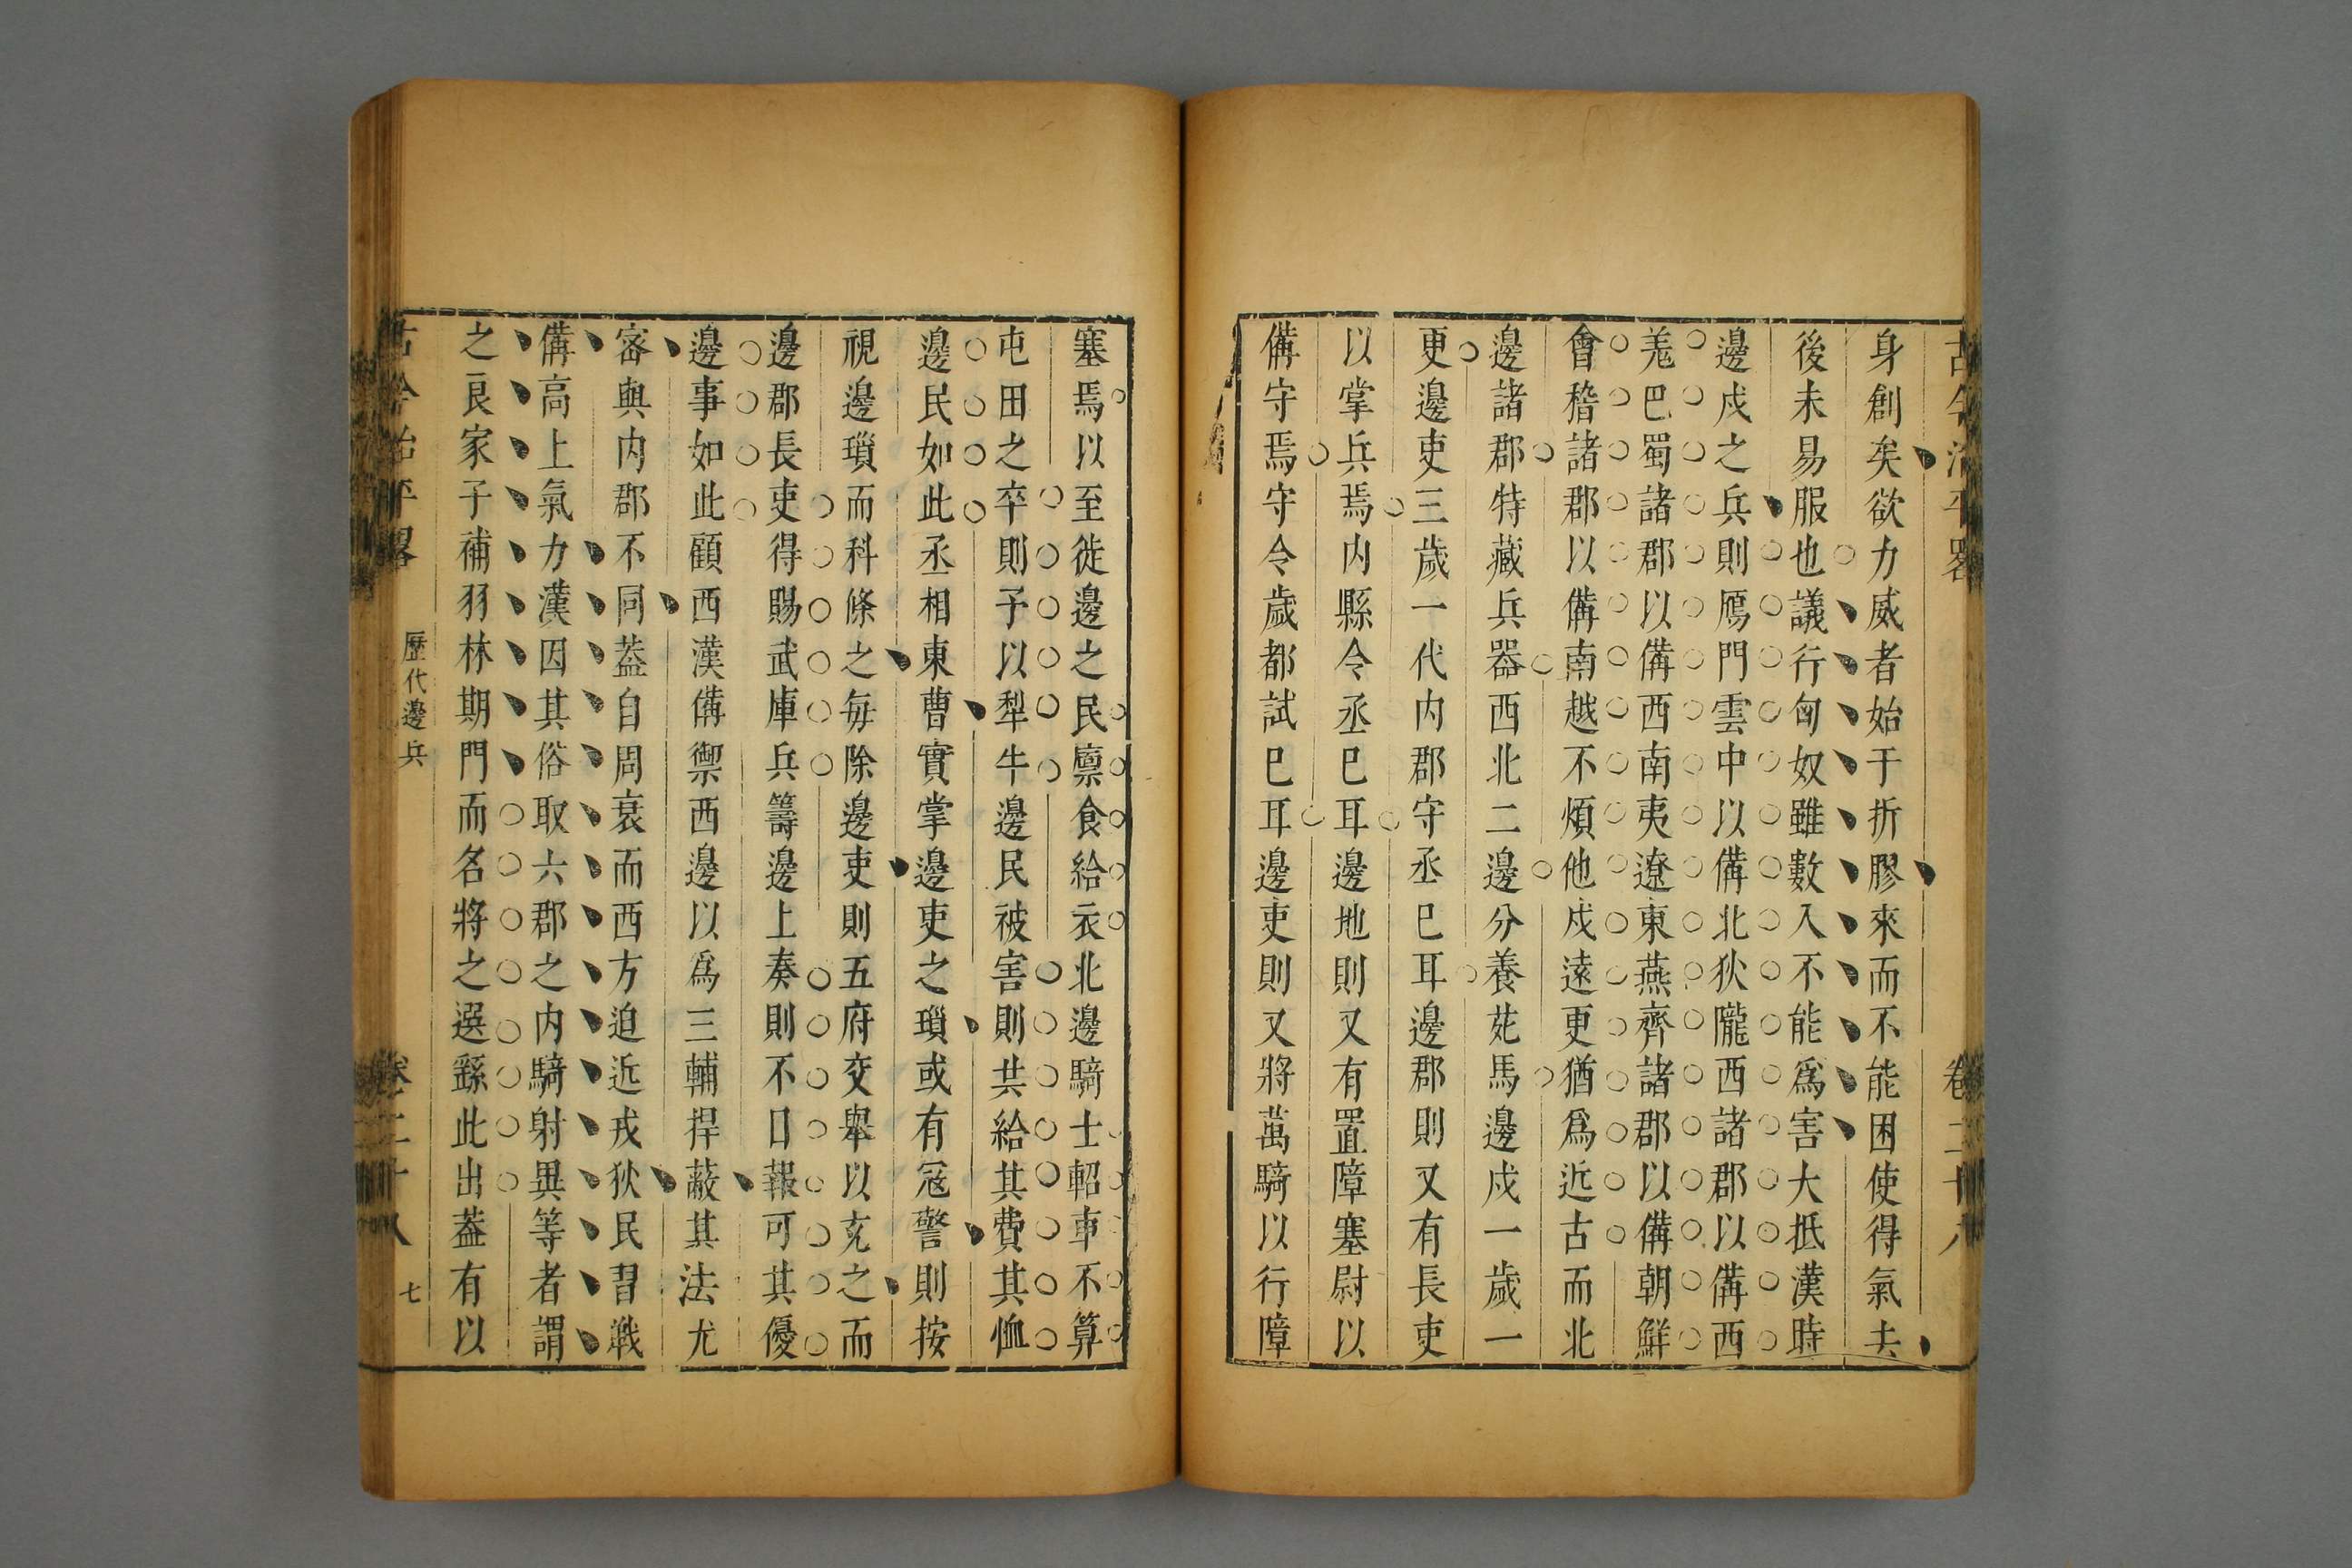 古今治平畧 卷二十八
身創矣欲力威者始于折膠來而不能困使得氣去
後未易服也議行匈奴雖數入不能爲害大抵漢時
邊戍之兵則鴈門雲中以備北狄隴西諸郡以備西
羗巴蜀諸郡以備西南夷遼東燕齊諸郡以備朝鮮
會稽諸郡以備南越不煩他戍遠更猶爲近古而北
邊諸郡特藏兵器西北二邊分養苑馬邊戍一歲一
更邊吏三歲一代内郡守丞巳耳邊郡則又有長吏
以掌兵焉内縣令丞巳耳邊地則又有置障塞尉以
備守焉守令歲都試巳耳邊吏則又將萬騎以行障
塞焉以至徙邊之民廪食給衣北邊騎士軺車不算
屯田之卒則予以犁牛邊民被害則共給其費其恤
邊民如此丞相東曹實掌邊吏之瑣或有冦警則按
視邊瑣而科條之每除邊吏則五府交舉以充之而
邊郡長吏得賜武庫兵籌邊上奏則不日報可其優
邊事如此顧西漢備禦西邊以爲三輔捍蔽其法尤
密與内郡不同葢自周衰而西方迫近戎狄民習戰
備高上氣力漢因其俗取六郡之内騎射異等者謂
之良家子補羽林期門而名將之選繇此出葢有以
古今治平畧 歷代邊兵 卷二十八 七